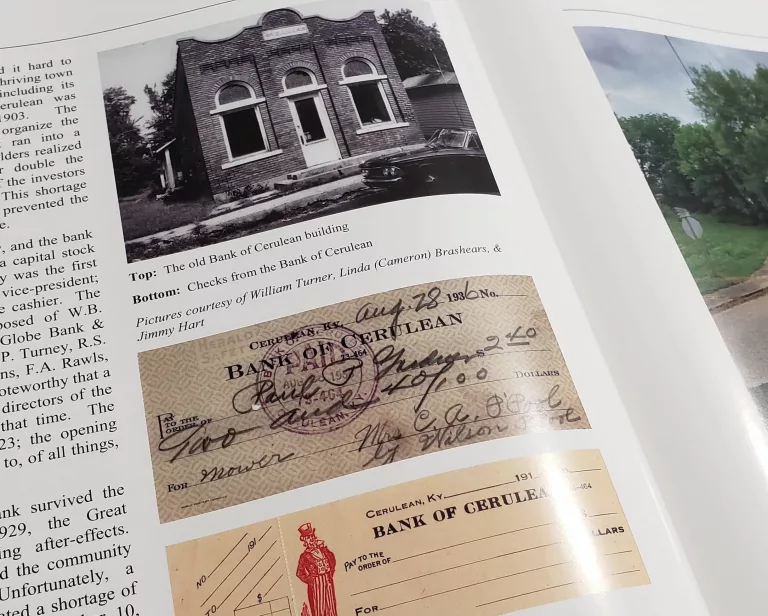 d it hard to
hriving town
including its
erulean was
1903. The
organize the
ran into a
lders realized
r double the
f the investors
This shortage
prevented the
e.
, and the bank
a capital stock
y was the first
vice-president;
e cashier. The
posed of W.B.
Globe Bank &
P. Turney, R.S.
ns, F.A. Rawls,
oteworthy that a
directors of the
that time. The
23; the opening
to, of all things,
nk survived the
929, the Great
ing after-effects.
d the community
Unfortunately, a
ated a shortage of
10,
Top: The old Bank of Cerulean building
Bottom: Checks from the Bank of Cerulean
Pictures courtesy of William Turner, Linda (Cameron) Brashears, &
Jimmy Hart
Cerulean, Ky. Aug 28 1936 No.
BANK OF CERULEAN
PAID
PAY TO THE ORDER OF Paul $ 2 40
Two and 40/100 DOLLARS
Mrs C. A. P'Pool
For mower by Wilson P'Pool
Cerulean, Ky. 191
BANK OF CERULEA
PAY TO THE
ORDER OF $
LLARS
For
NO. 191
TO
$